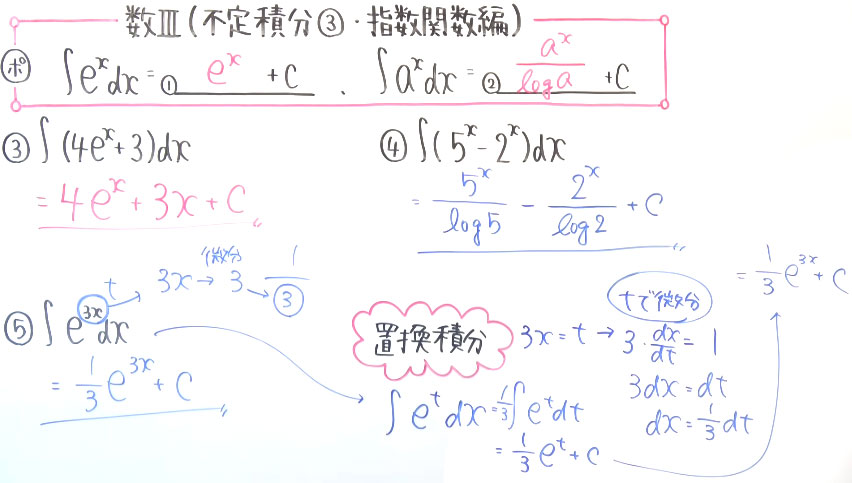 数Ⅲ(不定積分③・指数関数編)
ポ ∫eˣdx = ① eˣ + C 、 ∫aˣdx = ② aˣ/log a + C
③ ∫(4eˣ+3)dx
= 4eˣ + 3x + C
④ ∫(5ˣ - 2ˣ)dx
= 5ˣ/log5 - 2ˣ/log2 + C
⑤ ∫e³ˣdx
t 3x → 3 → 1/③
微分
= 1/3 e³ˣ + C
置換積分 3x = t → 3・dx/dt = 1
tで微分
3dx = dt
dx = 1/3 dt
∫eᵗdx = 1/3∫eᵗdt
= 1/3 eᵗ + C
= 1/3 e³ˣ + C